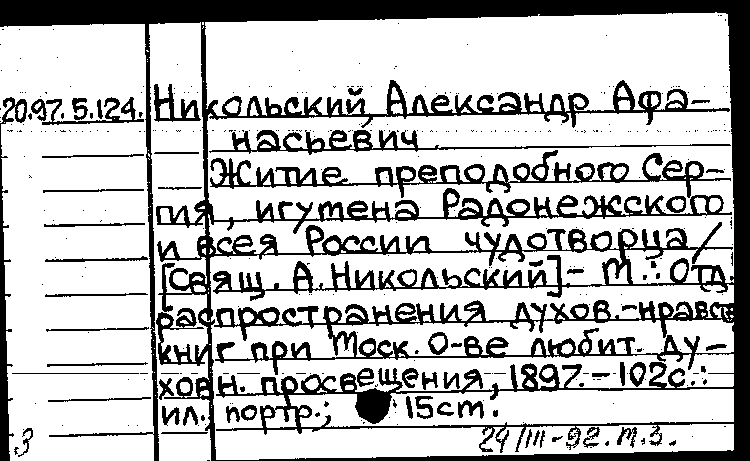 20.97.5.124. Никольский, Александр Афа-
насьевич.
Житие преподобного Сер-
гия, игумена Радонежского
и всея России чудотворца /
[Свящ. А. Никольский]. - М.: Отд.
распространения духов.-нравств.
книг при Моск. О-ве любит. ду-
ховн. просвещения, 1897. - 102с.:
ил., портр.; 15см.
3
24/III-92. М.З.